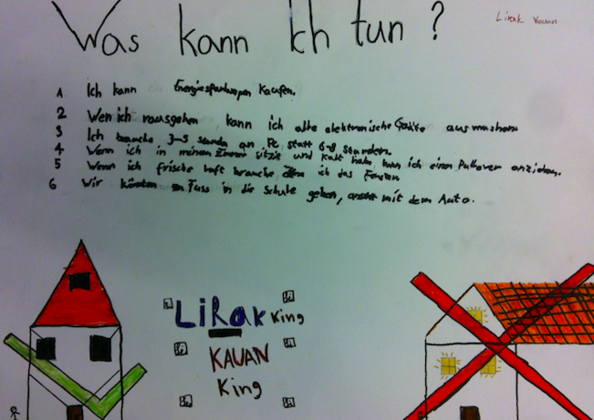 Was kann Ich tun?
Lirak Kauan
1 Ich kann Energiesparlampen Kaufen.
2 Wen ich rausgehen, kann ich alle elektronische Geräte ausmashen
3 Ich brauche 3-5 stunden an Pc statt 6-8 stunden.
4 Wenn ich in meinen Zimmer sitze und Kalt habe kan ich einen Pullover anziehen.
5 Wenn ich frische luft brauche öffen ich das Fenster
6 Wir könten zu Fuss in die Schule gehen, mit dem Auto.
LiRak King
KAUAN
King